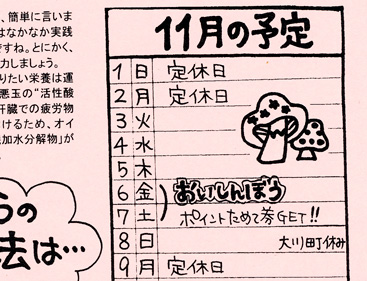 、簡単に言いま
はなかなか実践
ですね。とにかく、
力しましょう。
りたい栄養は運
悪玉の“活性酸
肝臓での疲労物
けるため、オイ
加水分解物」が
うの
法は…
11月の予定
1 日 定休日
2 月 定休日
3 火
4 水
5 木
6 金 おいしんぼう
7 土 ポイントためて券GET!!
8 日 大川町休み
9 月 定休日